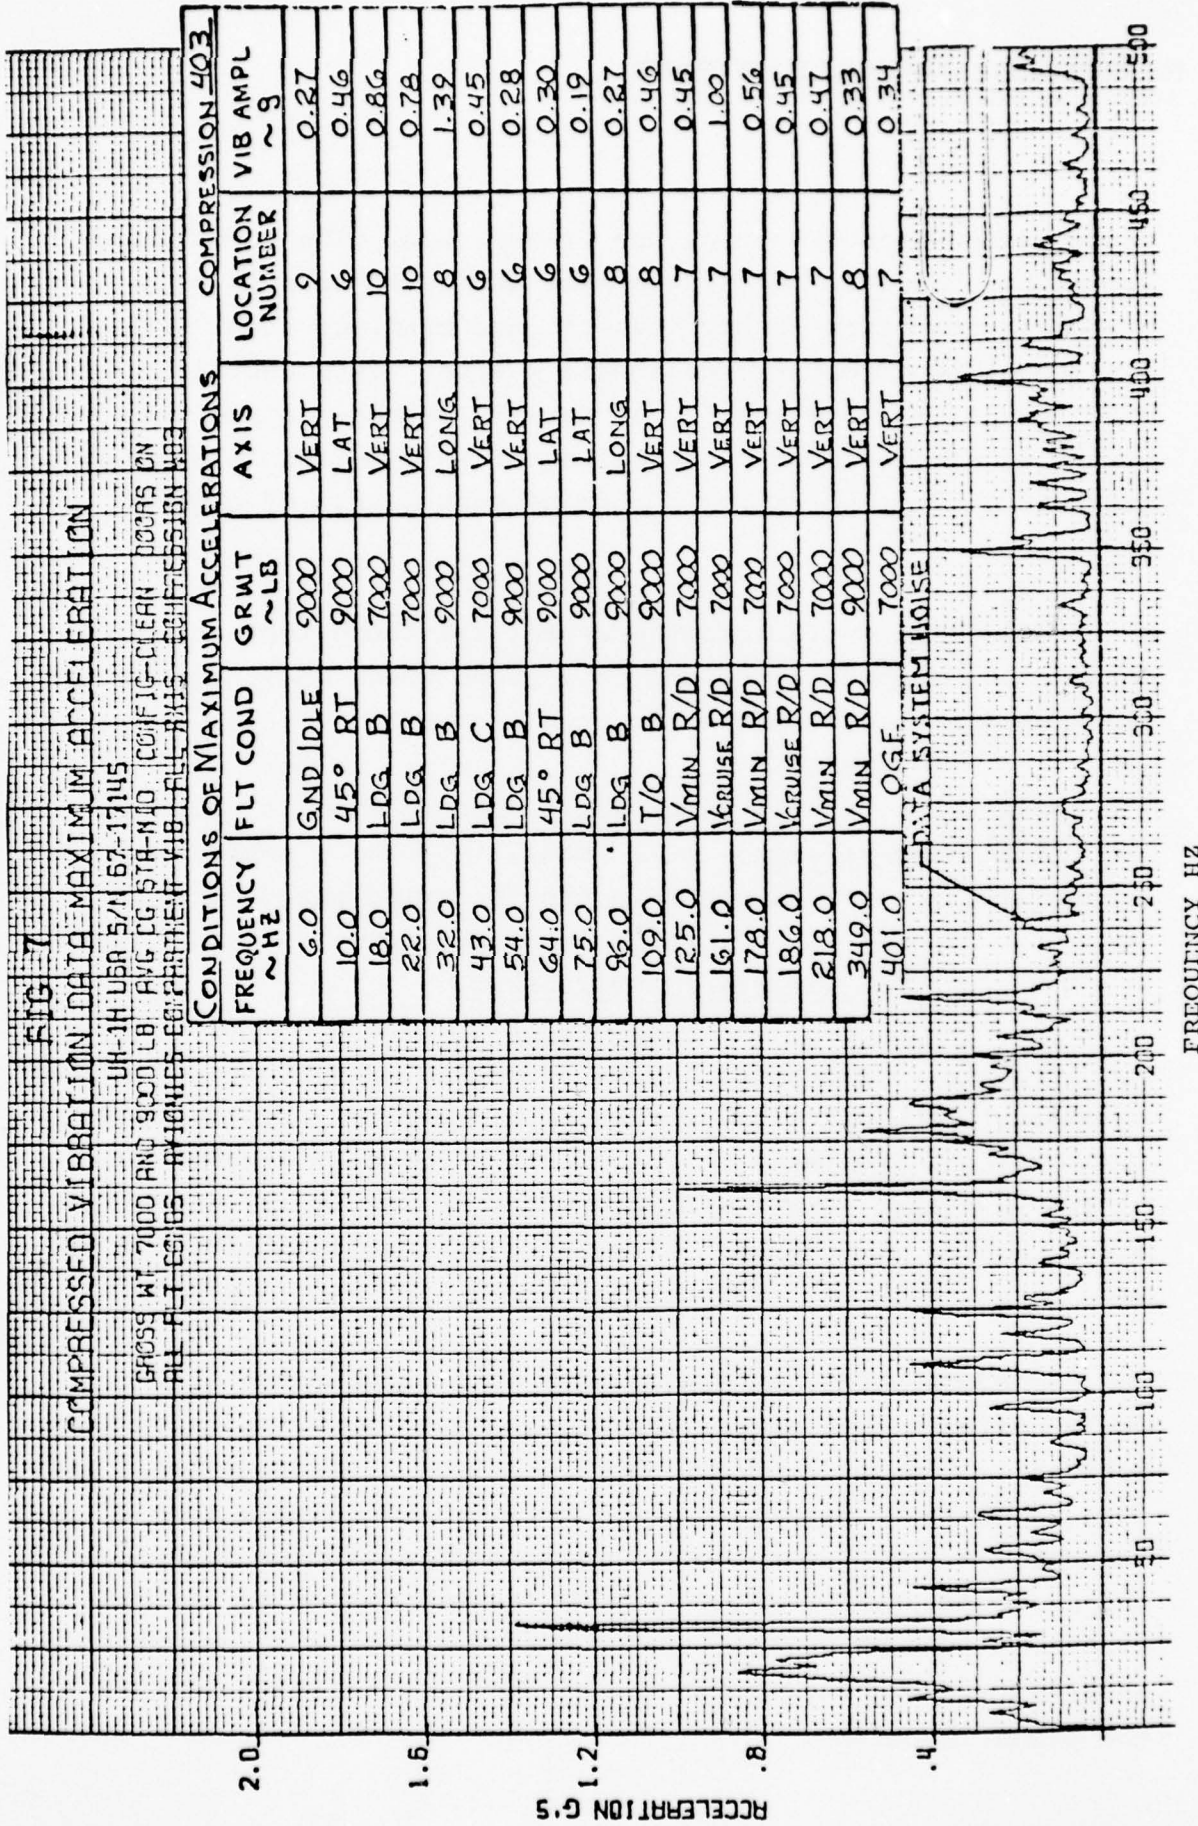 FIG 7
COMPRESSED VIBRATION DATA MAXIMUM ACCELERATION
UH-1H USA S/N 67-17145
GROSS WT 7000 AND 9000 LB AVG CG STA-MID CONFIG-CLEAN DOORS ON
ALL FLT CONDS AVIONICS COMPARTMENT VIB ALL AXIS COMPRESSION 403
CONDITIONS OF MAXIMUM ACCELERATIONS COMPRESSION 403
FREQUENCY ~HZ FLT COND GRWT ~LB AXIS LOCATION NUMBER VIB AMPL ~g
6.0 GND IDLE 9000 VERT 9 0.27
10.0 45° RT 9000 LAT 6 0.46
18.0 LDG B 7000 VERT 10 0.86
22.0 LDG B 7000 VERT 10 0.78
32.0 LDG B 9000 LONG 8 1.39
43.0 LDG C 7000 VERT 6 0.45
54.0 LDG B 9000 VERT 6 0.28
64.0 45° RT 9000 LAT 6 0.30
75.0 LDG B 9000 LAT 6 0.19
96.0 LDG B 9000 LONG 8 0.27
109.0 T/O B 9000 VERT 8 0.46
125.0 VMIN R/D 7000 VERT 7 0.45
161.0 VCRUISE R/D 7000 VERT 7 1.00
178.0 VMIN R/D 7000 VERT 7 0.56
186.0 VCRUISE R/D 7000 VERT 7 0.45
218.0 VMIN R/D 7000 VERT 7 0.47
349.0 VMIN R/D 9000 VERT 8 0.33
401.0 OGE 7000 VERT 7 0.34
DATA SYSTEM NOISE
2.0
1.6
1.2
.8
.4
ACCELERATION G'S
50 100 150 200 250 300 350 400 450 500
FREQUENCY HZ